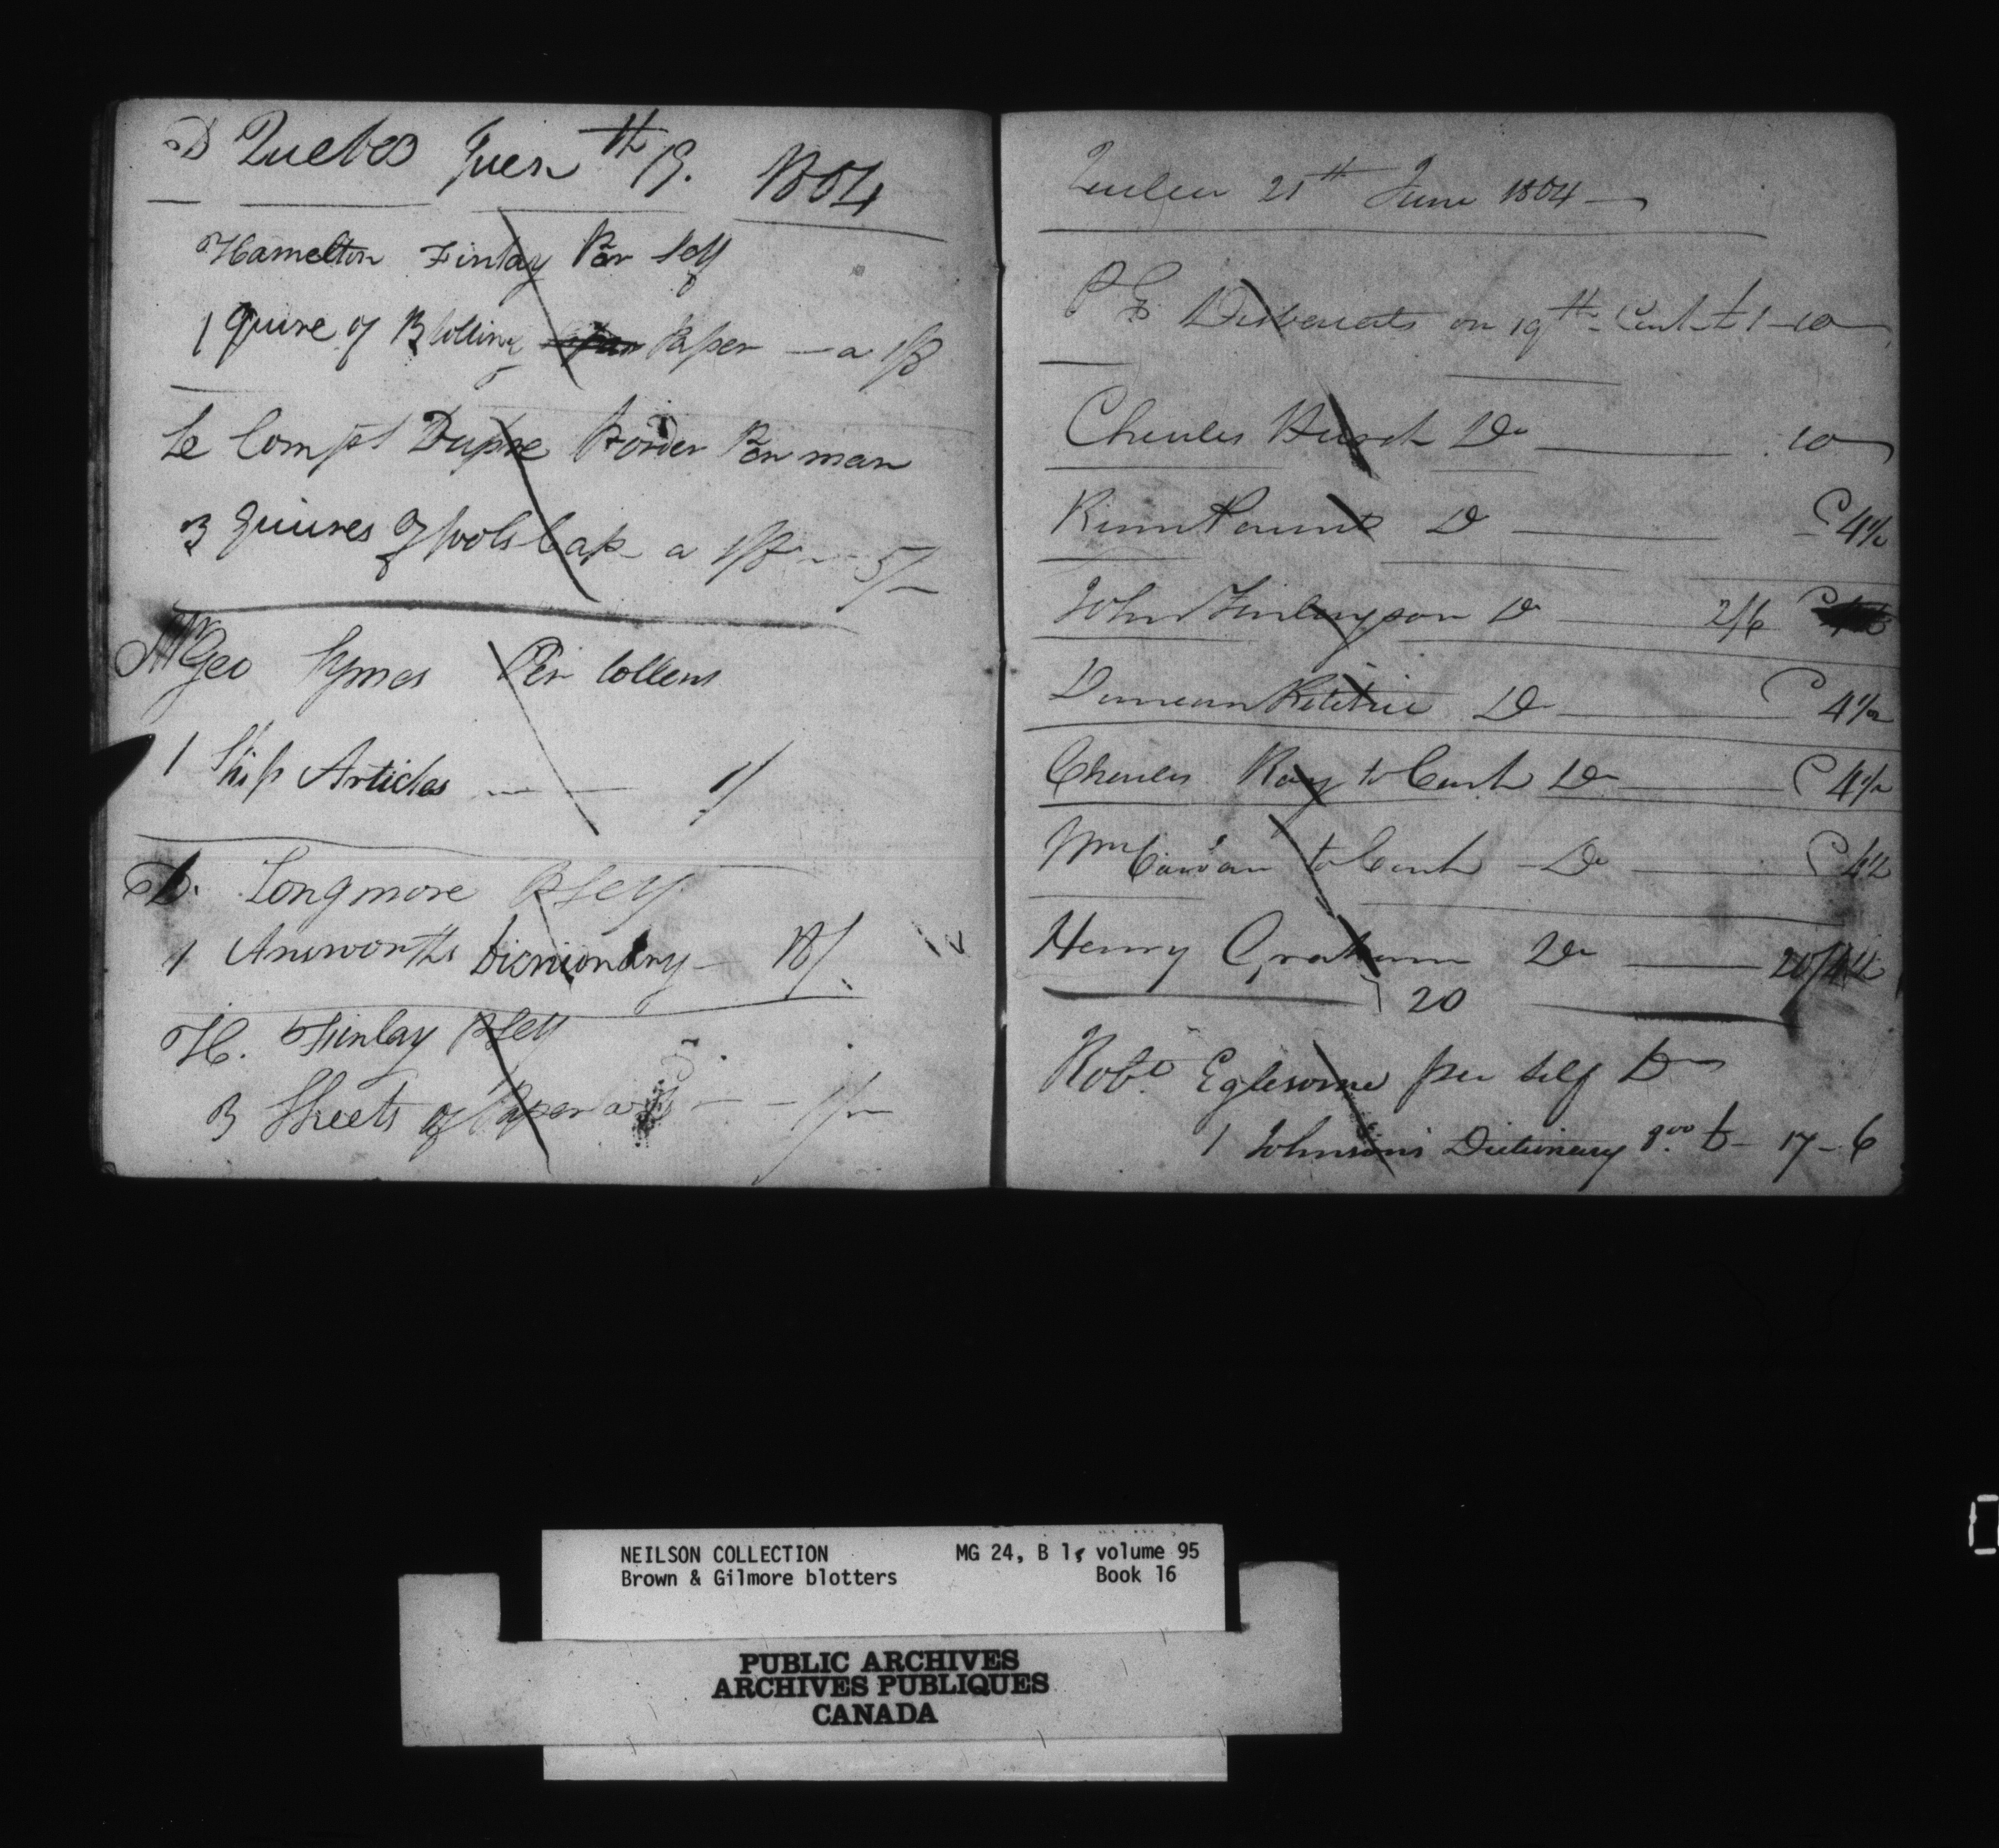 D Quebec Juen th 19. 1804
Hamelton Finlay Per Self
1 Quire of Blotting Paper — a 1/8
Le Compt Dupre Border Per man
3 Quires of fools Cap a 1/8 — 5/—
Mr Geo Symes Per Collens
1 Ship Articles — — 1/
D. Longmore P Self
1 Answorths Dicnionary — 18/.
H. Finlay P Self
3 Sheets of Paper a — — 1/—
Quebec 21th June 1804 —
P E Desbarats on 19th Cash £1–10
Charles Dr — 10
Dr — 4½
John Finlayson Dr — 2/6
Duncan Ritchie Dr — 4½
Charles Ray to Cash Dr — 4½
Wm to Cash – Dr —
Henry Graham Dr — 20/
20
Robt. Eglesome per self Dr
1 Johnson's Dictionary 8vo £– 17–6
NEILSON COLLECTION MG 24, B 1, volume 95
Brown & Gilmore blotters Book 16
PUBLIC ARCHIVES
ARCHIVES PUBLIQUES
CANADA